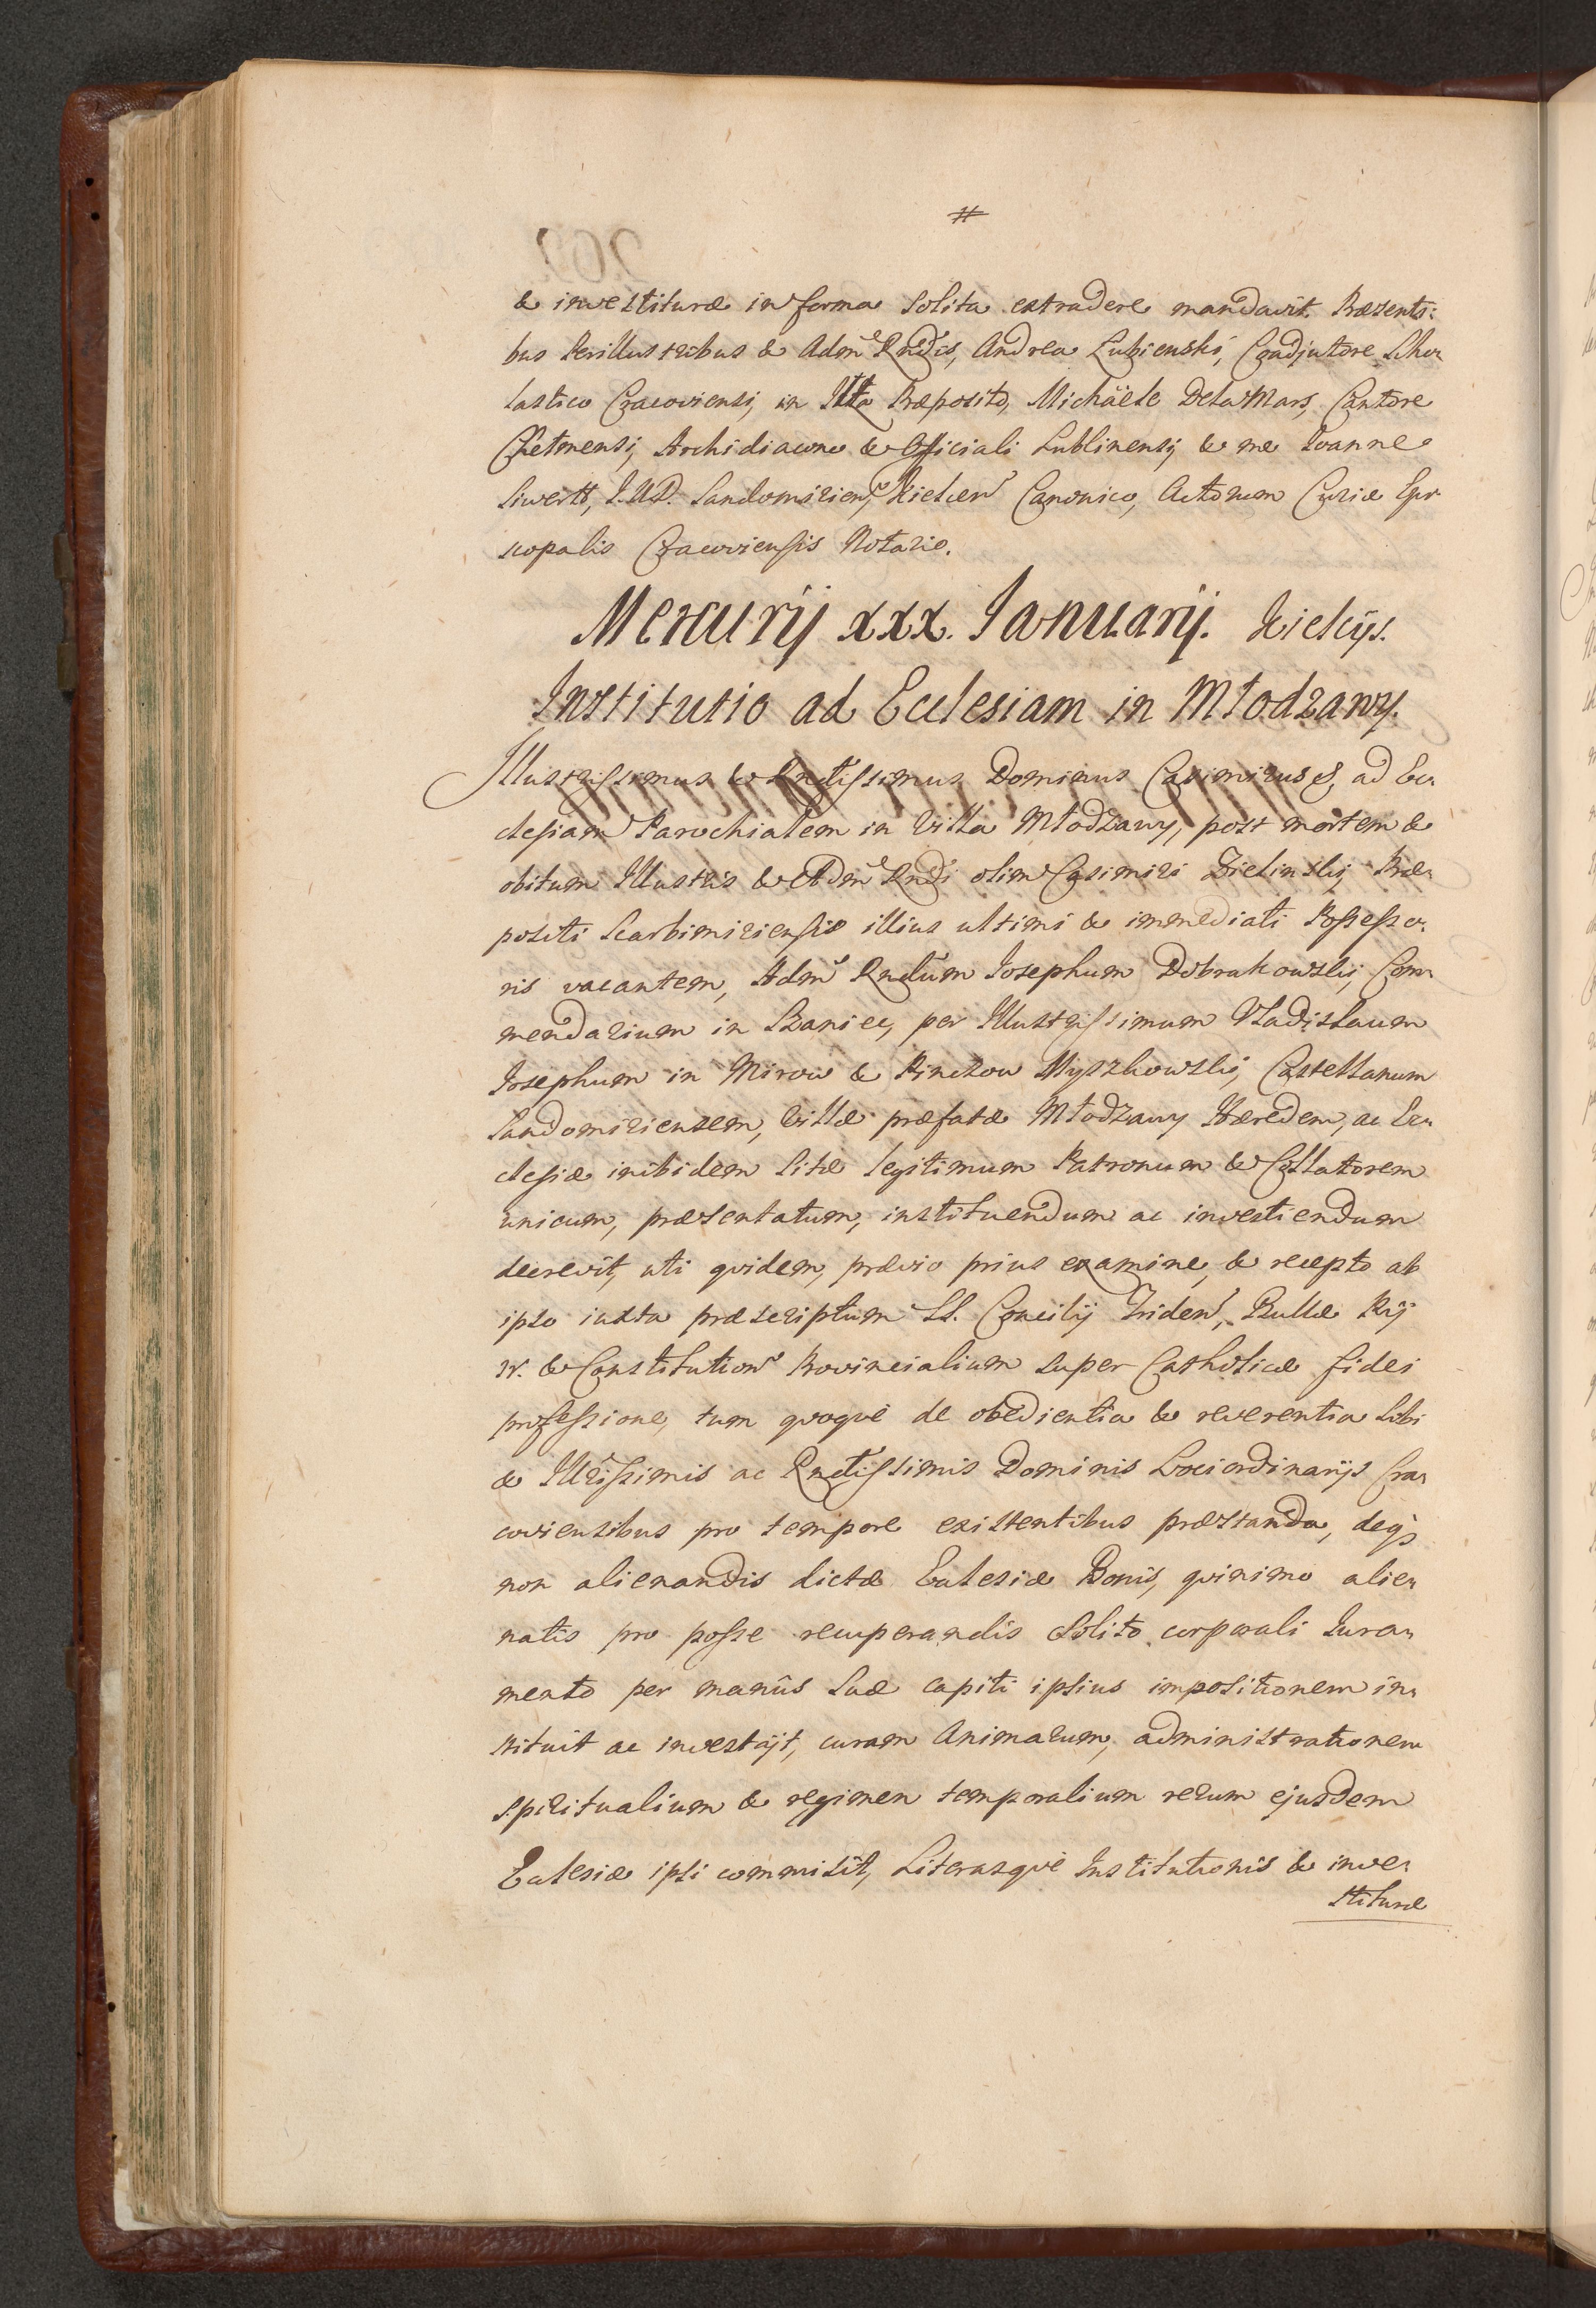 & investituræ in forma solita extradere mandavit. Præsenti=
bus Perillustribus & Adm Rndis, Andrea Lubienski, Coadjutore Scho=
lastico Cracoviensi, in Præposito, Michäele DelaMars, Cantore
Chelmensi, Archidiacono & Officiali Lublinensi, & me Ioanne
Siwertt, I.U.D. Sandomirien, Kielcen Canonico, Actorum Curiæ Epi=
scopalis Cracoviensis Notario.
Mercurij xxx. Ianuarij. Kielcijs.
Institutio ad Ecclesiam in Młodzawy.
Illustrissimus & Rndissimus Dominus Casimirus &, ad Ec=
clesiam Parochialem in Villa Młodzawy, post mortem &
obitum Illustris & Adm Rndi olim Casimiri Zielinski, Præ=
positi Scarbimiriensis illius ultimi & immediati Possesso=
ris vacantem, Adm Rndum Iosephum Dobrakowski, Com=
mendarium in Szaniec, per Illustrissimum Vladislaum
Iosephum in Mirow & Pinczow Myszkowski, Castellanum
Sandomiriensem, Villæ præfatæ Młodzawy Hæredem, ac Ec=
clesiæ inibidem sitæ legitimum Patronum & Collatorem
unicum, præsentatum, instituendum ac investiendum
decrevit, uti quidem, prævio prius examine, & recepto ab
ipso iuxta præscriptum SS. Concilij Triden, Bullæ Pij
IV. & Constitution Provincialium super Catholicæ fidei
professione, tum quoque de obedientia & reverentia sibi
& Illrissimis ac Rndissimis Dominis Lociordinarijs Cra=
coviensibus pro tempore existentibus præstanda, deq3
non alienandis dictæ Ecclesiæ Bonis, quinimo alie=
natis pro posse recuperandis solito corporali Iura=
mento per manûs suæ capiti ipsius impositionem in=
stituit ac investijt, curam Animarum, administrationem
spiritualium & regimen temporalium rerum ejusdem
Ecclesiæ ipsi commisit, Literasque Institutionis & inve=
stituræ